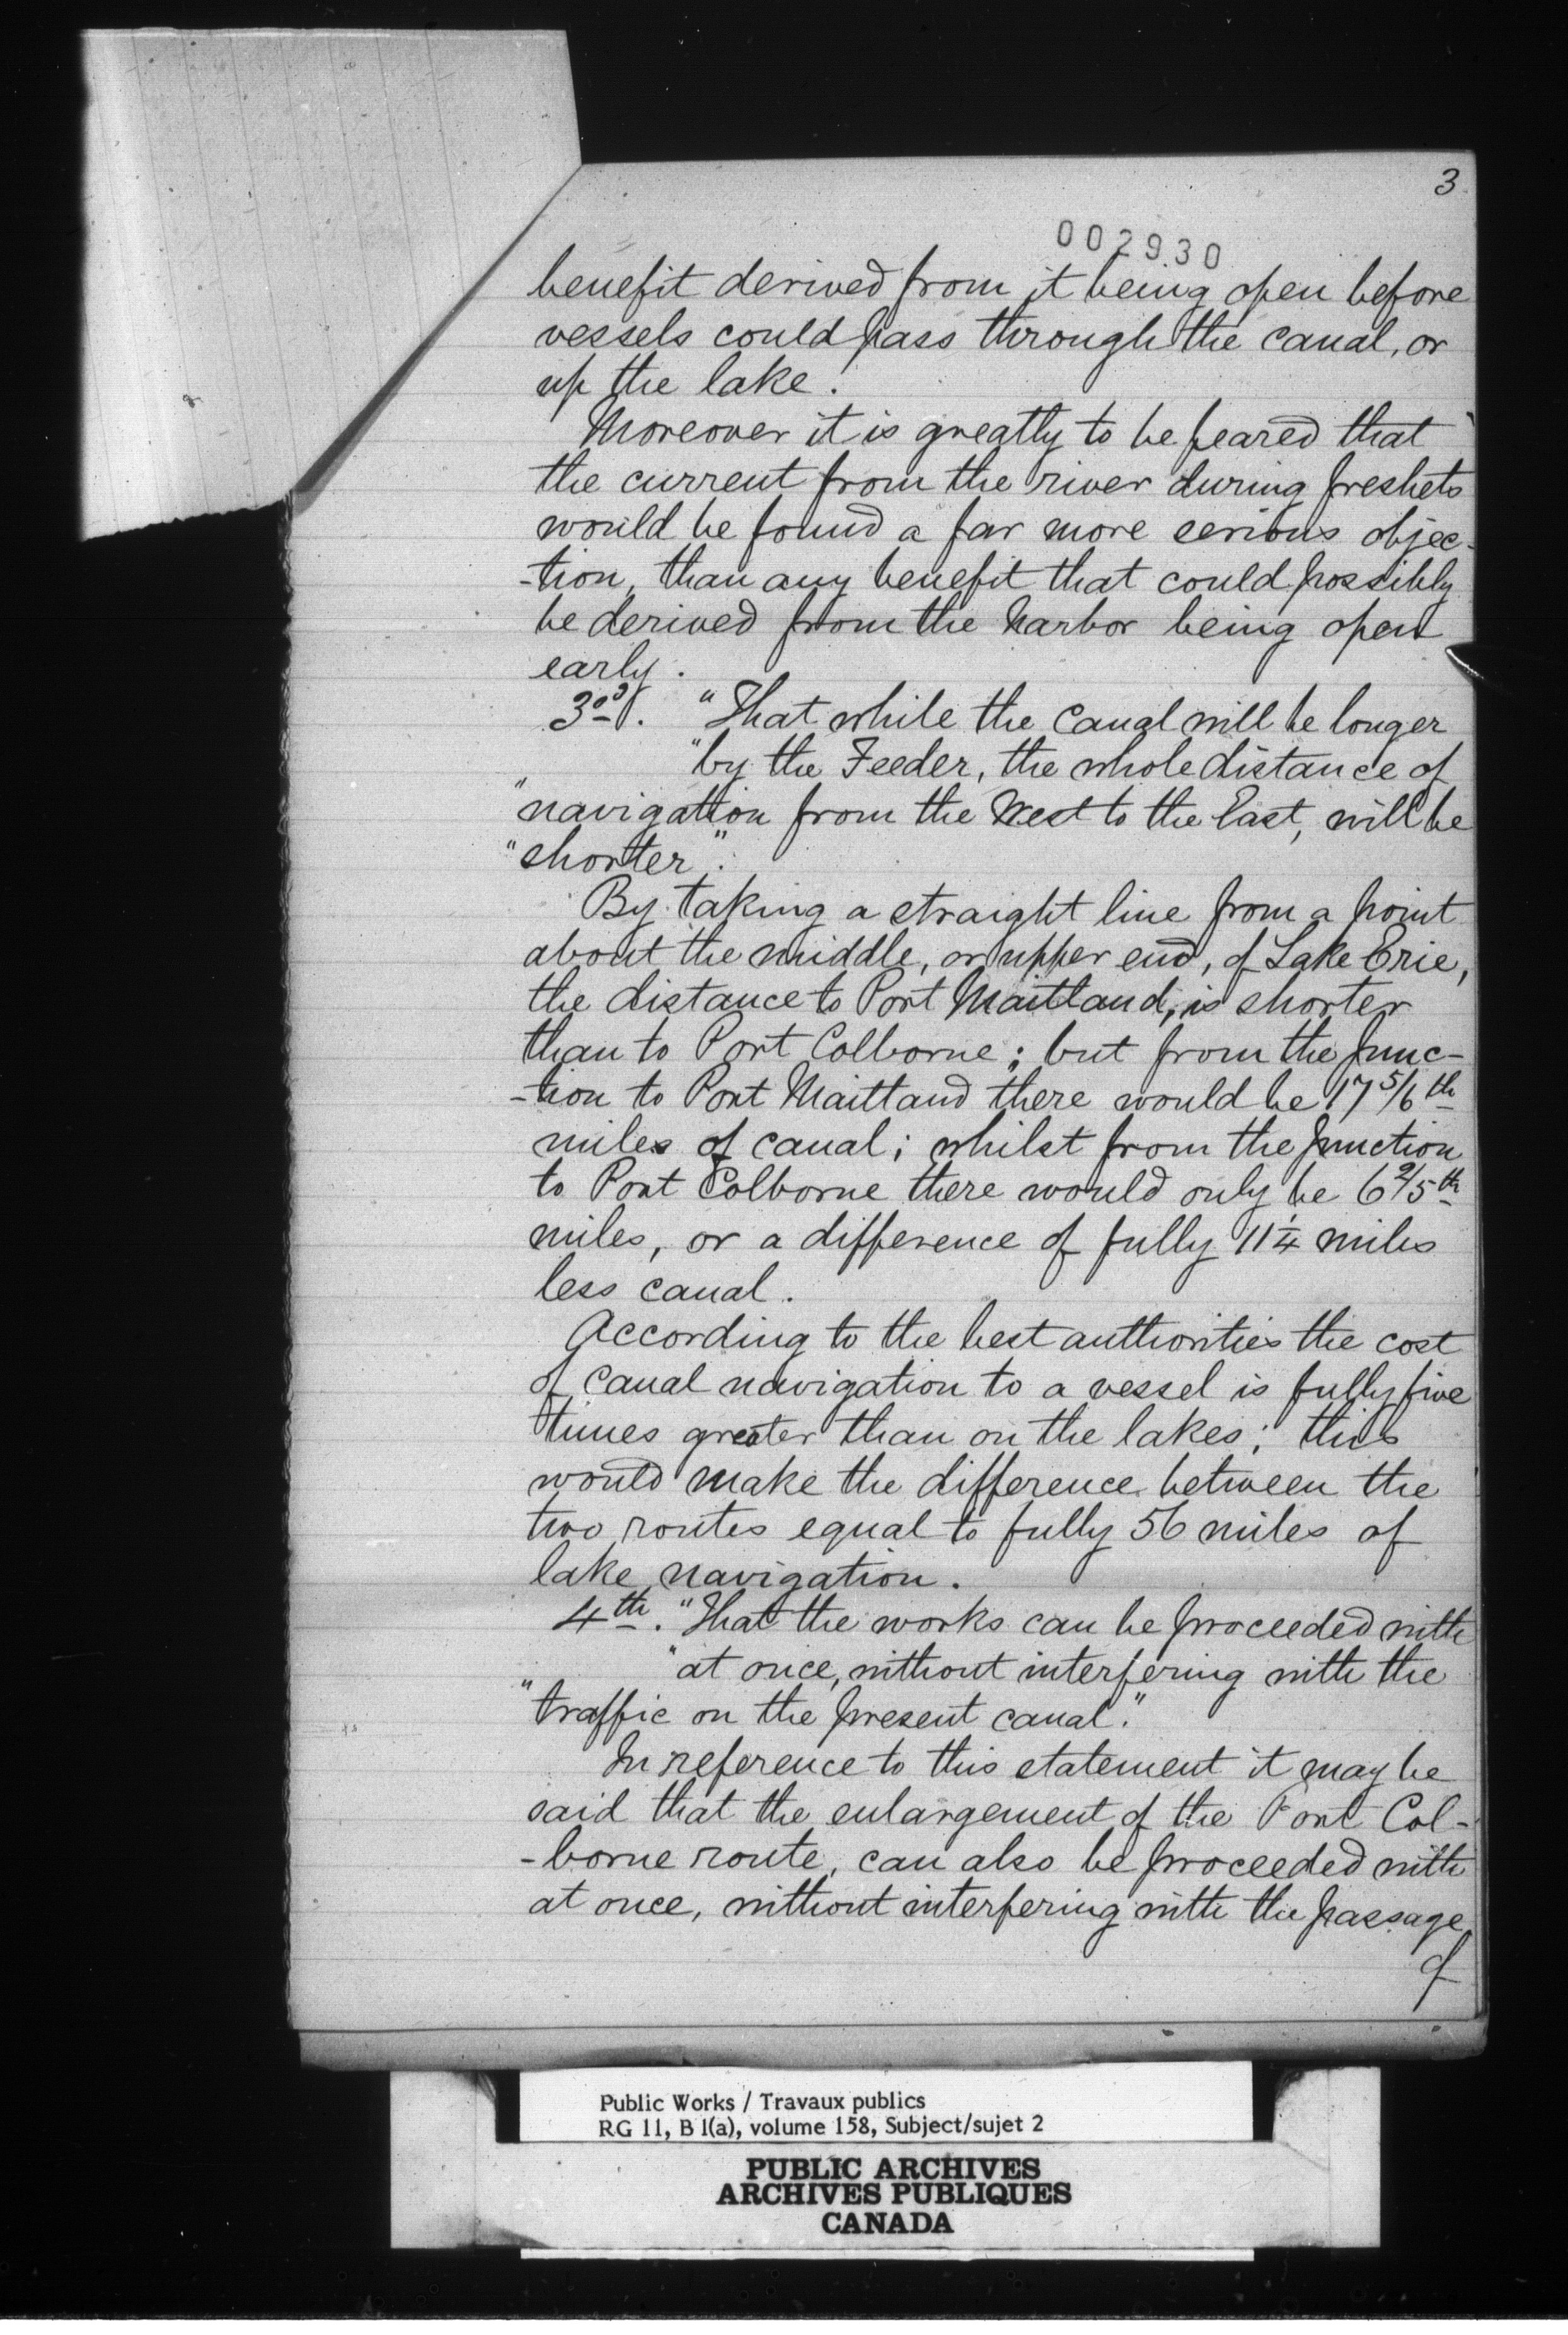 3
002930
benefit derived from it being open before
vessels could pass through the canal, or
up the lake.
Moreover it is greatly to be feared that
the current from the river during freshets
would be found a far more serious objec-
-tion, than any benefit that could possibly
be derived from the harbor being open
early.
3rd. "That while the Canal will be longer
"by the Feeder, the whole distance of
"navigation from the West to the East, will be
"shorter".
By taking a straight line from a point
about the middle, or upper end, of Lake Erie,
the distance to Port Maitland, is shorter
than to Port Colborne; but from the Junc-
-tion to Port Maitland there would be 17 5/6th
miles of canal; whilst from the Junction
to Port Colborne there would only be 6 2/5th
miles, or a difference of fully 11 1/4 miles
less canal.
According to the best authorities the cost
of canal navigation to a vessel is fully five
times greater than on the lakes; this
would make the difference between the
two routes equal to fully 56 miles of
lake navigation.
4th. "That the works can be proceeded with
"at once, without interfering with the
"traffic on the present canal."
In reference to this statement it may be
said that the enlargement of the Port Col-
-borne route, can also be proceeded with
at once, without interfering with the passage
of
Public Works / Travaux publics
RG 11, B 1(a), volume 158, Subject/sujet 2
PUBLIC ARCHIVES
ARCHIVES PUBLIQUES
CANADA